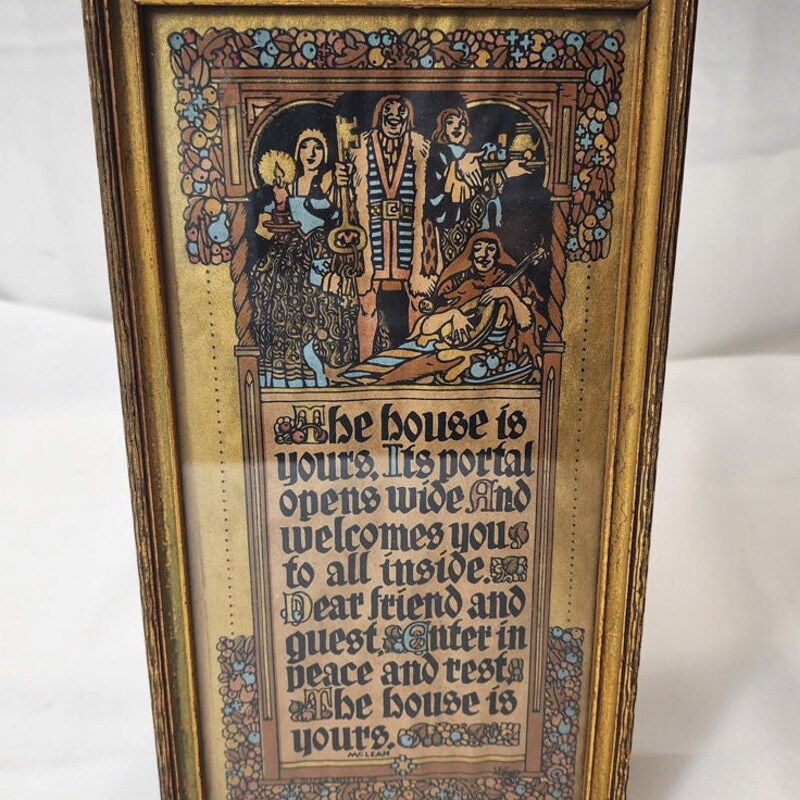 The house is
yours. Its portal
opens wide And
welcomes you
to all inside.
Dear friend and
guest, Enter in
peace and rest
The house is
yours.
McLEAN